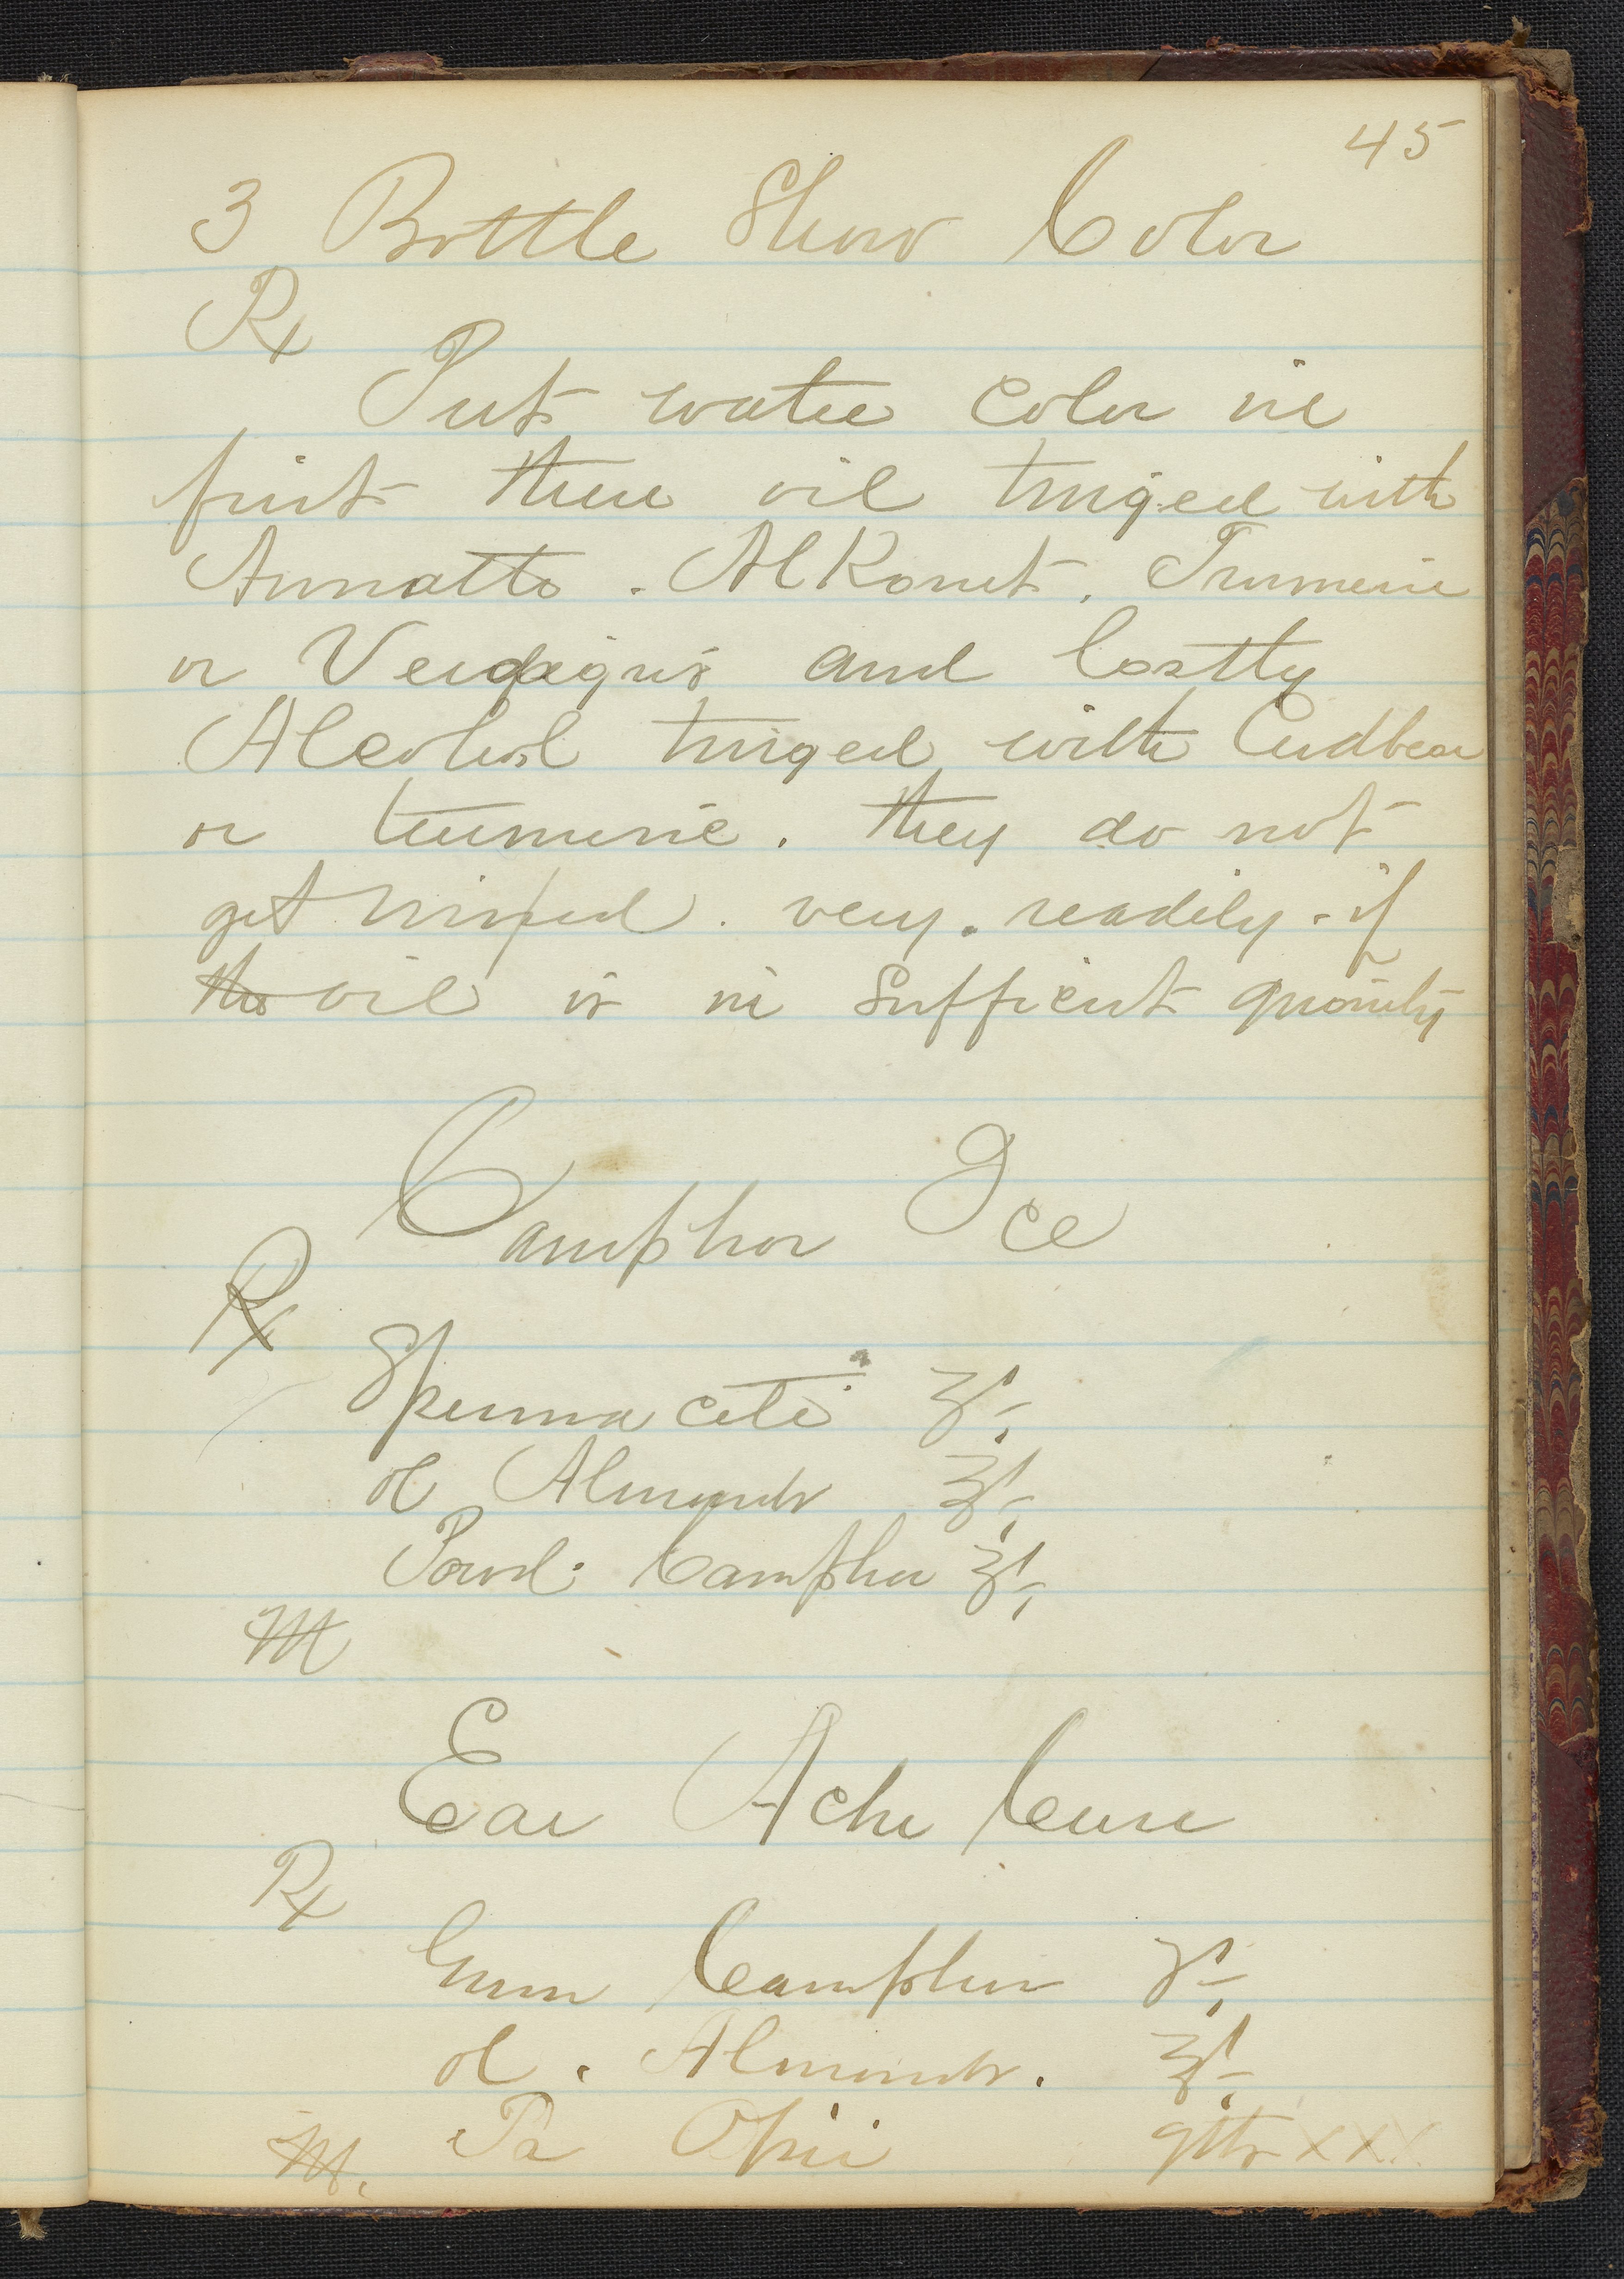 45
3 Bottle Show Color
Rx
Put water color in
first then oil tinged with
Annatto. Alkanet. Trumeric
or Verdegris and lastly
Alcohol tinged with Cudbear
or turmeric. they do not
get mixed. very. readily. if
the oil is in sufficient quantity
Camphor Ice
Rx
Spermaceti ℥i
ol Almonds ℥i
Powd. Camphor ℥i
M
Ear Ache Cure
Rx
Gum Camphor ʒi
ol. Almonds. ℥i
M. Tr Opii gtts xxx